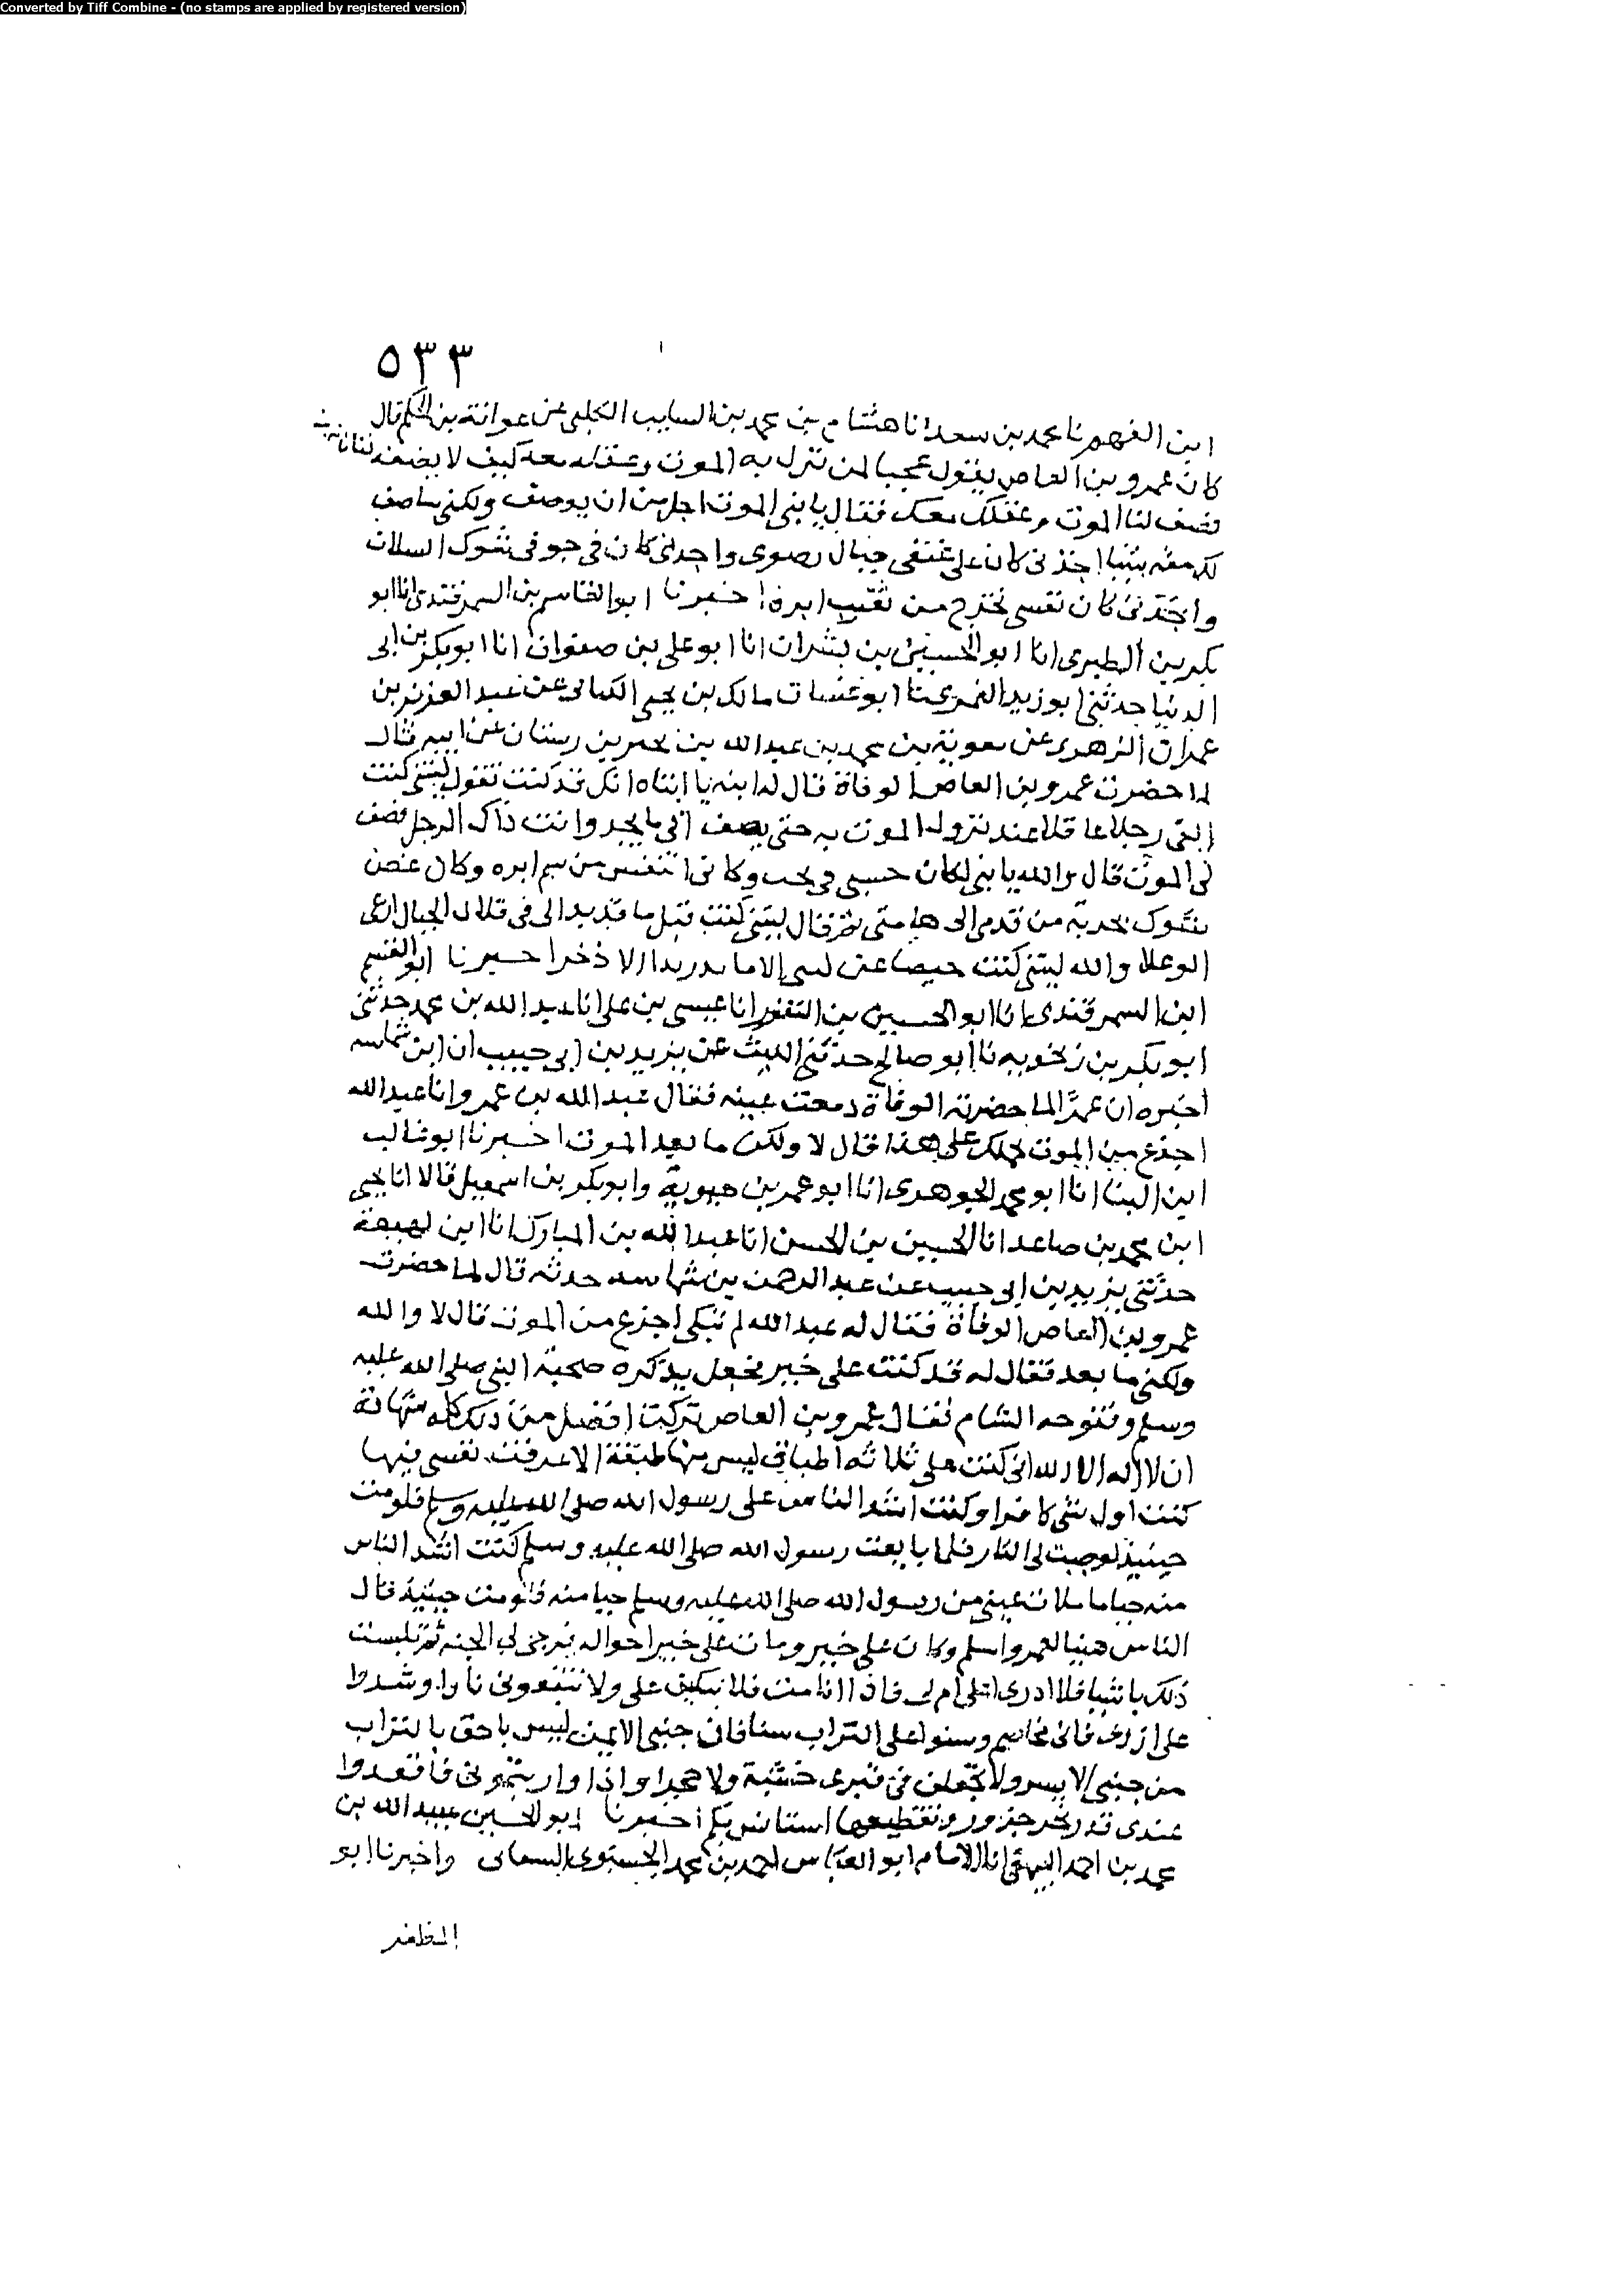 Converted by Tiff Combine - (no stamps are applied by registered version)
٥٣٣
ابن الفهم نا محمد بن سعد انا هشام بن محمد بن السايب الكلبى عن عوانة بن الحكم قال
كان عمرو بن العاص يقول عجبا لمن نزل به الموت وعقله معه كيف لا يصفه
فصف لنا الموت وعقلك معك فقال يا بنى الموت اجل من ان يوصف ولكنى ساصف
لك منه شيئا اجدنى كان على عنقى جبال رضوى واجدنى كان فى جوفى شوك السلات
واجدنى كان نفسى تخرج من ثقب ابرة اخبرنا ابو القاسم بن السمرقندى انا ابو
بكر بن الطبرى انا ابو الحسين بن بشران انا ابو على بن صفوان انا ابو بكر بن ابى
الدنيا حدثنى ابو زيد النمرى نا ابو غسان مالك بن يحيى الكنانى عن عبد العزيز بن
عمران الزهرى عن معوية بن محمد بن عبد الله بن بحير بن ريسان عن ابيه قال
لما حضرت عمرو بن العاص الوفاة قال له ابنه يا ابتاه انك قد كنت تقول ليتنى كنت
القى رجلا عاقلا عند نزول الموت به حتى يصف لى ما يجد وانت ذاك الرجل فصف
لى الموت قال والله يا بنى لكان جنبى فى تخت وكانى اتنفس من سم ابره وكان غصن
شوك يجر به من قدمى الى هامتى ثم قال ليتنى كنت قبل ما قد بدا لى فى قلال الجبال ارعى
الوعلا والله ليتنى كنت حيضا اخبرنا ابو القسم
ابن السمرقندى انا ابو الحسين بن النقور انا عيسى بن على انا عبد الله بن محمد حدثنى
ابو بكر بن زنجويه نا ابو صالح حدثنى الليث عن يزيد بن ابى حبيب ان ابن شماسه
اخبره ان عمرًا لما حضرته الوفاة دمعت عينه فقال عبد الله بن عمرو انا عبد الله
اجزع من الموت يحملك على هذا قال لا ولكن ما بعد الموت اخبرنا ابو غالب
ابن البنا انا ابو محمد الجوهرى انا ابو عمر بن حيوية وابو بكر بن اسمعيل قالا انا يحيى
ابن محمد بن صاعد انا الحسين بن الحسن انا عبد الله بن المبارك انا ابن لهيعة
حدثنى يزيد بن ابى حبيب عن عبد الرحمن بن شماسه حدثه قال لما حضرت
عمرو بن العاص الوفاة فقال له عبد الله لم تبكى اجزع من الموت قال لا والله
ولكنى ما بعد فقال له قد كنت على خير فجعل يذكره صحبة النبى صلى الله عليه
وسلم وفتوحه الشام فقال عمرو بن العاص تركت افضل من ذلك كله شهادة
ان لا اله الا الله انى كنت على ثلاثه اطباق ليس منها طبقة الا عرفت نفسى فيها
كنت اول شى كافرا وكنت اشد الناس على رسول الله صلى الله عليه وسلم فلو مت
حينيذ لوجبت لى النار فلما بايعت رسول الله صلى الله عليه وسلم كنت اشد الناس
منه حيا ما ملات عينى من رسول الله صلى الله عليه وسلم حيا منه فلو مت حينيذ قال
الناس هنيا لعمرو اسلم وكان على خير ومات على خير احواله نرجى له الجنه ثم تلبست
ذلك باشيا فلا ادرى اعلى ام لى فاذا انا مت فلا تبكين على ولا تتبعونى نارا وشدوا
على ازارى فانى مخاصم وسنوا على التراب سنا فان جنبى الايمن ليس باحق بالتراب
من جنبى الايسر ولا تجعلن فى قبرى خشبة ولا حجرا واذا واريتمونى فاقعدوا
عندى قدر نحر جزور وتقطيعها استانس بكم اخبرنا ابو الحسين عبيد الله بن
محمد بن احمد البيهقى انا الامام ابو العباس احمد بن محمد واخبرنا ابو
المظفر